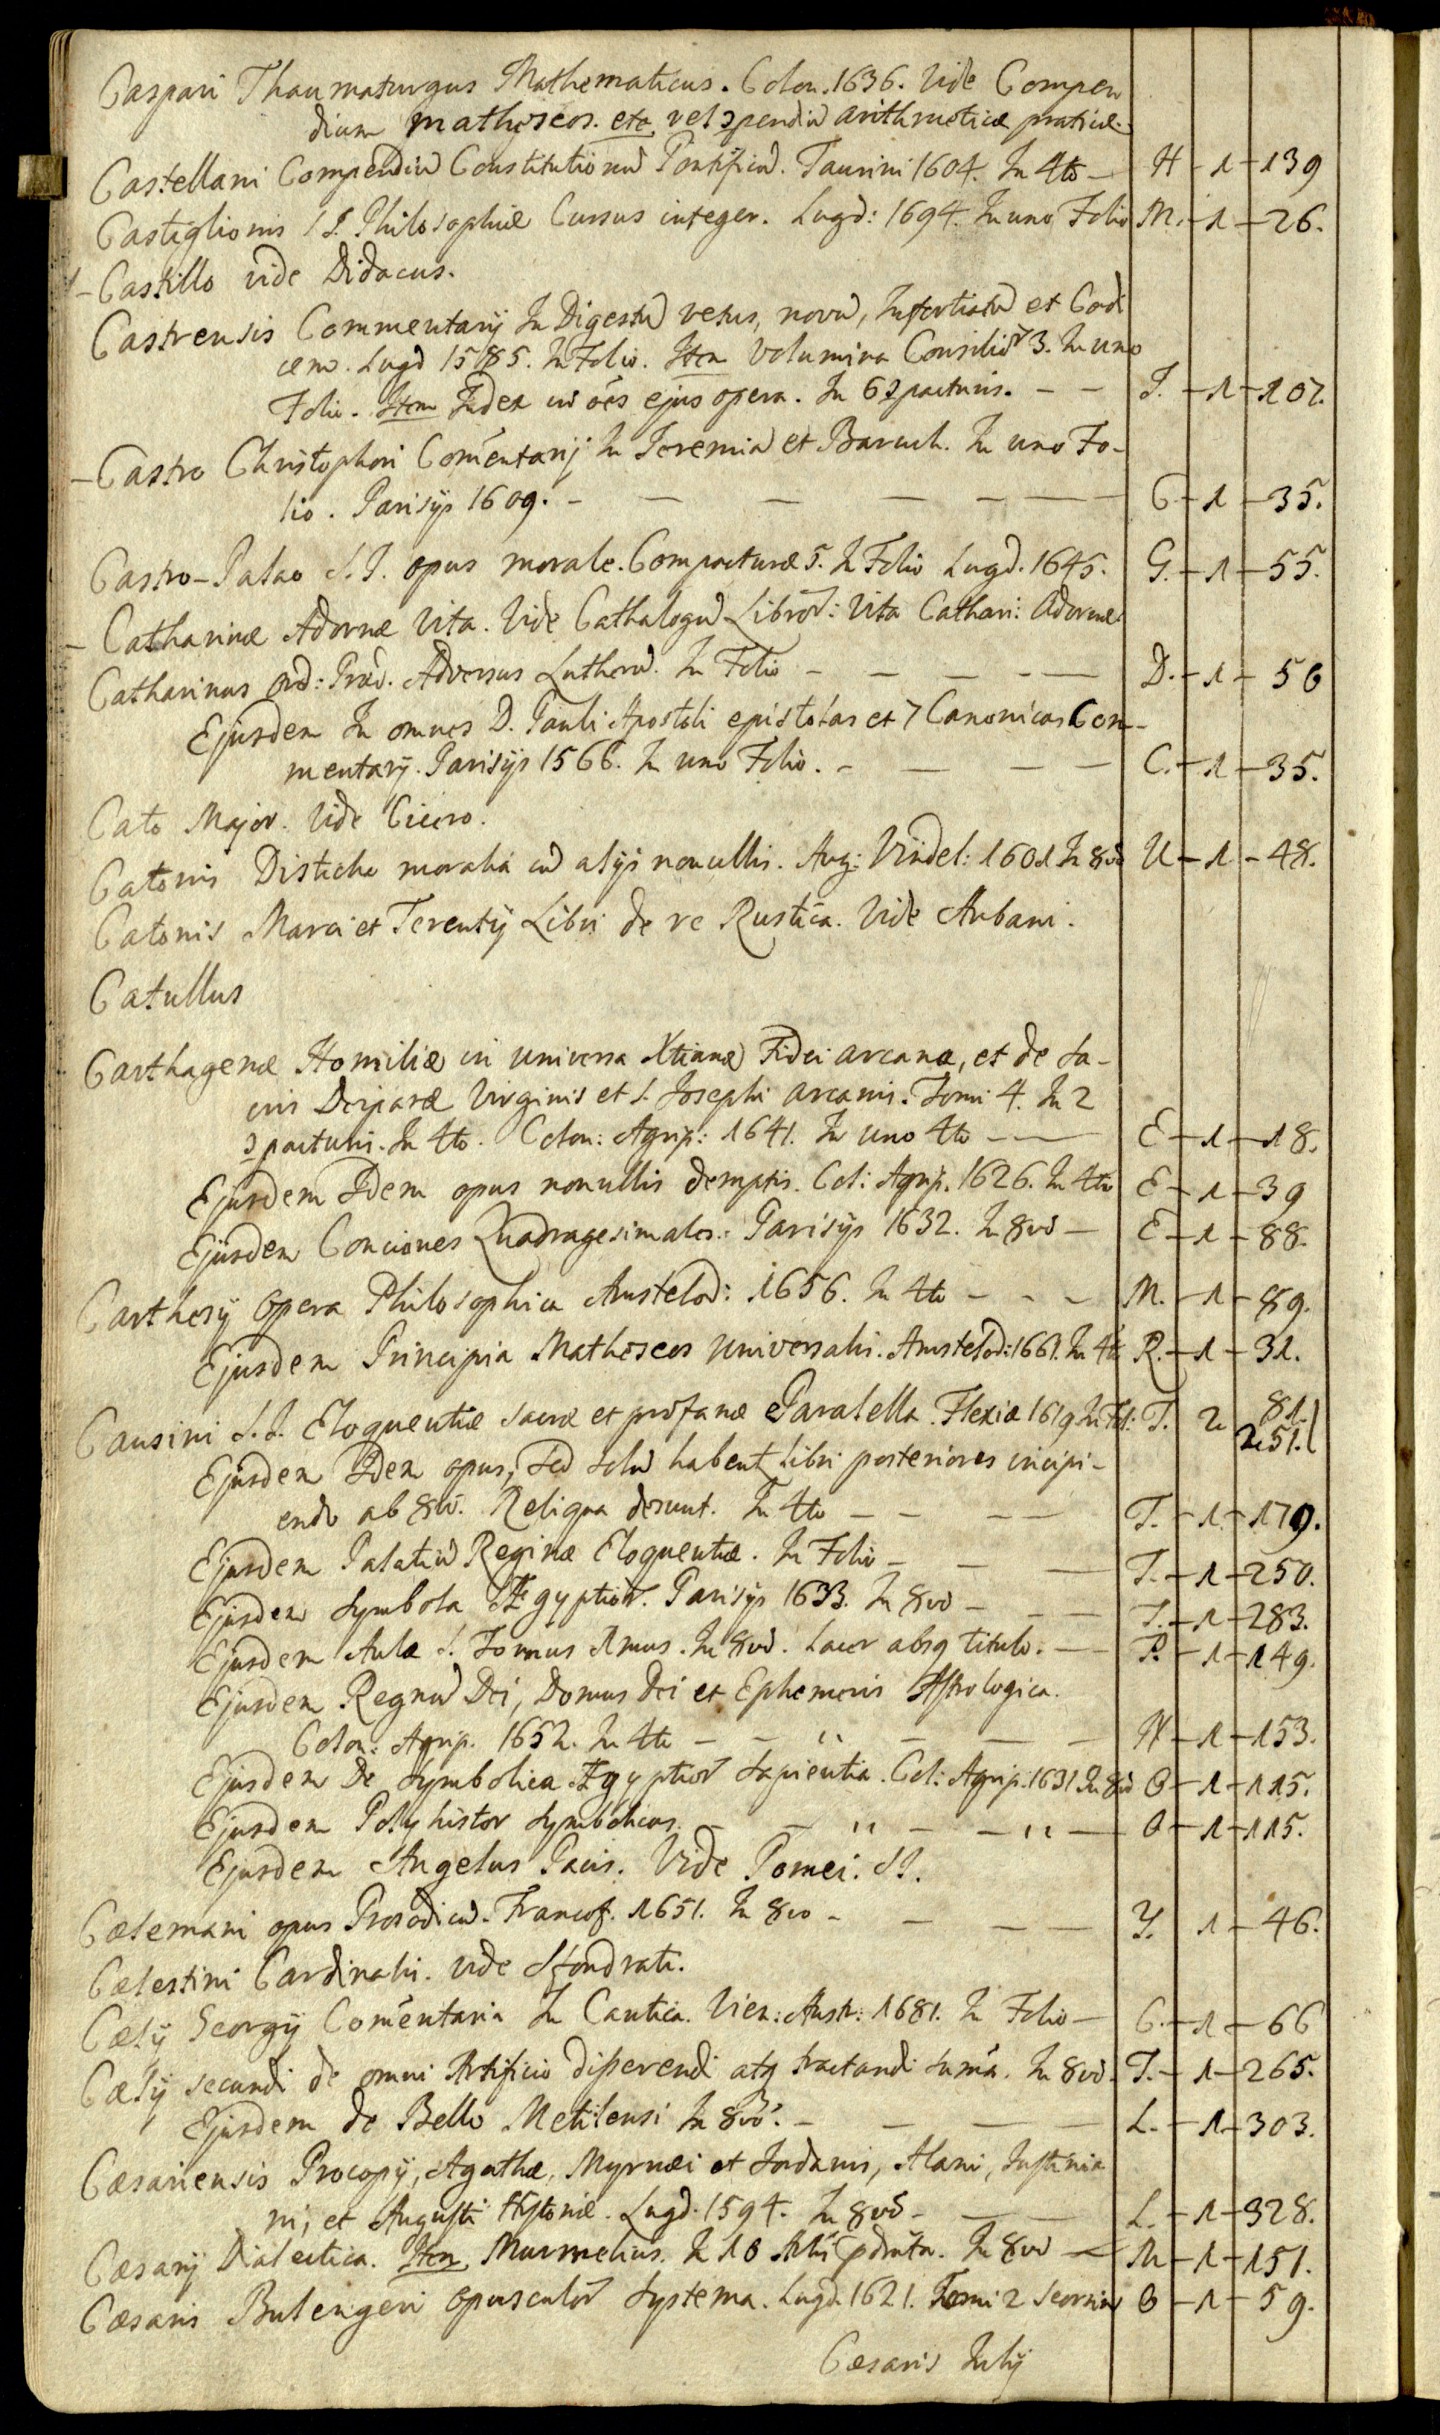 Caspari Thaumaturgus Mathematicus. Colon. 1636. Vide Compen
dium matheseos. etc vel ɔpendiũ arithmeticæ practicæ.
Castellani Compendiũ Constitutionũ Pontificiũ. Taurini 1604. In 4to — H - 1 - 139
Castiglionis S.J. Philosophiæ Cursus integer. Lugd: 1694. In uno Folio M. - 1 - 26.
- Castillo vide Didacus.
Castrensis Commentarij In Digestũ vetus, novũ, Infortiatũ et Codi
cem. Lugd 1585. In Folio. Item Volumina Consilior 3. In uno
Folio. Item Index in oẽs ejus opera. In 6 ɔpacturis. - - J. - 1 - 107.
- Castro Christophori Comẽntarij In Jeremiã et Baruch. In uno Fo-
lio. Parisijs 1609. - — — — - — — C - 1 - 35.
Castro-Palao S.J. opus morale. Compacturæ 5. In Folio Lugd. 1645. G. - 1 - 55.
- Catharinæ Adornæ Vita. Vide Cathalogũ Libror: Vita Cathari: Adornæ.
Catharinus Ord: Præd. Adversus Lutherũ. In Folio - — — - — D. - 1 - 56
Ejusdem In omnes D. Pauli Apostoli epistolas et 7 Canonicas Com-
mentarij. Parisijs 1566. In uno Folio. - — — — C. - 1 - 35.
Cato Major. Vide Cicero.
Catonis Disticha moralia cũ alijs nonullis. Aug: Vindel: 1601 In 8vo U - 1 - 48.
Catonis Marci et Terentij Libri de re Rustica. Vide Aubani.
Catullus
Carthagenæ Homiliæ in universa Xtianæ Fidei arcana, et de Sa-
cris Deiparæ Virginis et S. Josephi arcanis. Tomi 4. In 2
ɔpacturis. In 4to. Colon: Agrip: 1641. In uno 4to - — E - 1 - 18.
Ejusdem Idem opus nonullis demptis. Col: Agrip. 1626. In 4to E - 1 - 39
Ejusdem Conciones Quadragesimales. Parisijs 1632. In 8vo — E - 1 - 88.
Carthesij Opera Philosophica Amstelod: 1656. In 4to - - - M. - 1 - 89.
Ejusdem Principia Matheseos Universalis. Amstelod: 1661. In 4to R. - 1 - 31.
Causini S.J. Eloquentiæ sacræ et profanæ Paralella. Flexiæ 1619 In Fol: T. 2 81.
251.
Ejusdem Idem opus, sed solũ habent Libri posteriores incipi-
endo ab 8vo. Reliqua desunt. In 4to — - — — T. - 1 - 179.
Ejusdem Palatiũ Reginæ Eloquentiæ. In Folio - — — T. - 1 - 250.
Ejusdem Symbola Ægyptior. Parisijs 1633. In 8vo - - — T. - 1 - 283.
Ejusdem Aulæ S. Tomus 1mus. In 8vo. Lacer absq titulo. — P. - 1 - 149.
Ejusdem Regnũ Dei, Domus Dei et Ephemeris Astrologica.
Colon: Agrip. 1652. In 4to - - " - — — N - 1 - 153.
Ejusdem De Symbolica Ægyptior Sapientia. Col: Agrip: 1631 In 8vo O - 1 - 115.
Ejusdem Polyhistor Symbolicus. - — " - - " — O - 1 - 115.
Ejusdem Angelus Pacis. Vide Tomei. S.J.
Cælemani opus Prosodicũ. Francof. 1651. In 8vo - — — — Y. 1 - 46.
Cælestini Cardinalis. vide Sfondrati.
Cælij Georgij Comẽntaria In Cantica. Vien: Austr: 1681. In Folio — C. - 1 - 66
Cælij secundi de omni Artificio disserendi atq tractandi suma. In 8vo. T. - 1 - 265.
Ejusdem de Bello Melitensi In 8vo. - — — — L. - 1 - 303.
Cæsariensis Procopij, Agathæ, Myrnæi et Jordanis, Alani, Justinia
ni, et Augusti Historiæ. Lugd. 1594. In 8vo - — — L. - 1 - 328.
Cæsarij Dialectica. Item Murmelius. In 10 In 8vo — M - 1 - 151.
Cæsaris Bulengeri opusculor Systema. Lugd. 1621. Tomi 2 Seorsim O - 1 - 59.
Cæsaris Julij